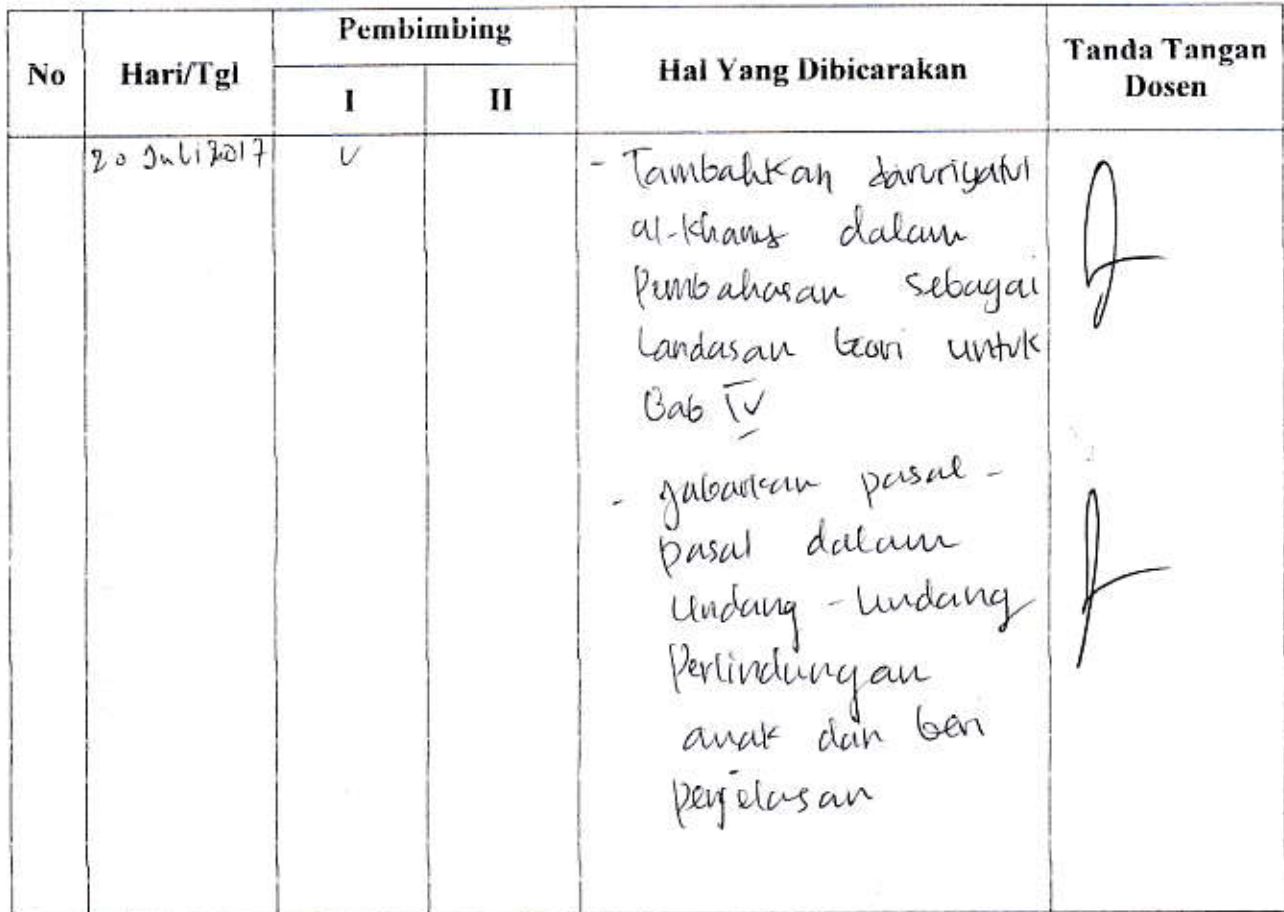 No Hari/Tgl Pembimbing Hal Yang Dibicarakan Tanda Tangan
Dosen
I II
20 Juli 2017 V - Tambahkan daruriyatul
al-khams dalam
Pembahasan sebagai
Landasan teori untuk
Bab IV
- Jabarkan pasal-
pasal dalam
Undang-Undang
Perlindungan
anak dan beri
penjelasan